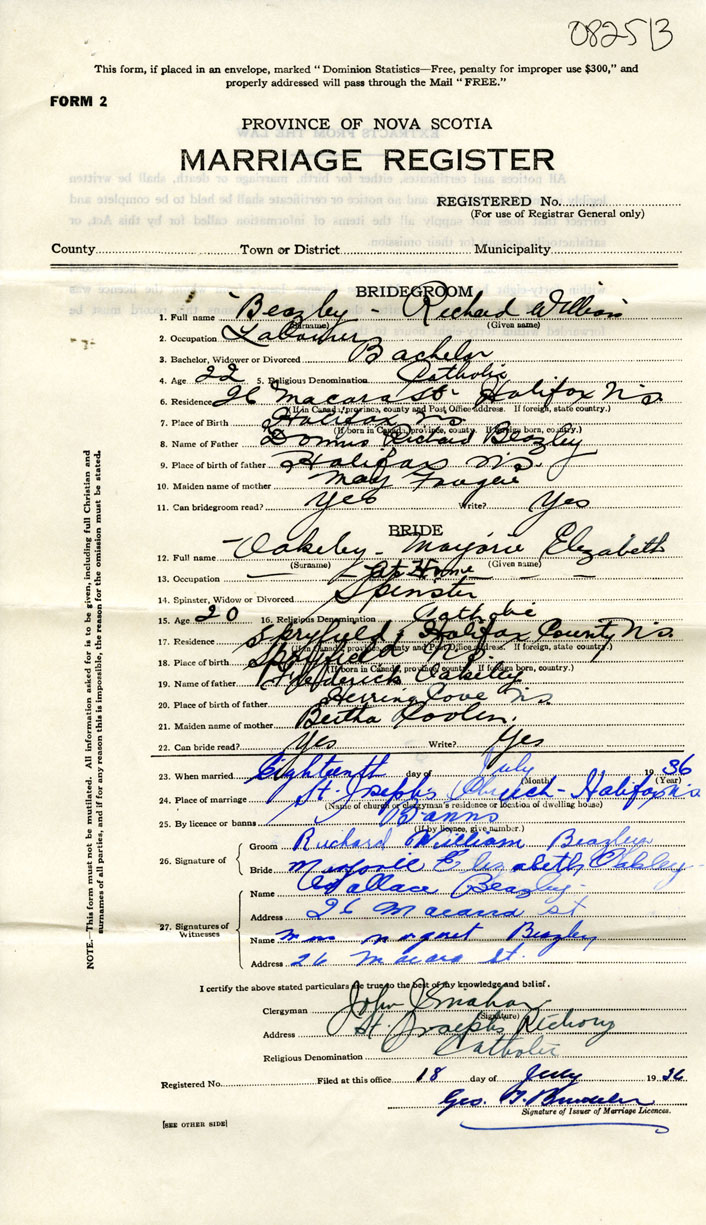 082513
This form, if placed in an envelope, marked "Dominion Statistics—Free, penalty for improper use $300," and
properly addressed will pass through the Mail "FREE."
FORM 2
PROVINCE OF NOVA SCOTIA
MARRIAGE REGISTER
REGISTERED No.
(For use of Registrar General only)
County Town or District Municipality
BRIDEGROOM
1. Full name Beazley - Richard William
(Surname) (Given name)
2. Occupation Labourer
3. Bachelor, Widower or Divorced Bachelor
4. Age 22 5. Religious Denomination Catholic
6. Residence 26 Macara St. Halifax N.S.
(If in Canada, province, county and Post Office address. If foreign, state country.)
7. Place of Birth Halifax N.S.
(If born in Canada, province, county. If foreign born, country.)
8. Name of Father Richard Beazley
9. Place of birth of father Halifax N.S.
10. Maiden name of mother May
11. Can bridegroom read? Yes Write? Yes
BRIDE
12. Full name Oakley - Marjorie Elizabeth
(Surname) (Given name)
13. Occupation — At Home — —
14. Spinster, Widow or Divorced Spinster
15. Age 20 16. Religious Denomination Catholic
17. Residence Spryfield, Halifax County N.S.
(If in Canada, province, county and Post Office address. If foreign, state country.)
18. Place of birth Spryfield N.S.
(If born in Canada, province, county. If foreign born, country.)
19. Name of father Frederick Oakley
20. Place of birth of father Herring Cove N.S.
21. Maiden name of mother Bertha Coolen.
22. Can bride read? Yes Write? Yes
23. When married Eighteenth day of July 1936
(Month) (Year)
24. Place of marriage St. Josephs Church - Halifax N.S.
(Name of church or clergyman's residence or location of dwelling house)
25. By licence or banns Banns
(If by licence, give number.)
26. Signature of
Groom Richard William Beazley
Bride Marjorie Elizabeth Oakley
27. Signatures of Witnesses
Name Wallace Beazley
Address 26 Macara St
Name Mrs Margaret Beazley
Address 26 Macara St.
I certify the above stated particulars be true to the best of my knowledge and belief.
Clergyman John J Mahar
(Signature)
Address St. Josephs Rectory
Religious Denomination Catholic
Registered No. Filed at this office 18 day of July 1936
Geo.
Signature of Issuer of Marriage Licences.
[SEE OTHER SIDE]
NOTE.—This form must not be mutilated. All information asked for is to be given, including full Christian and
surnames of all parties, and if for any reason this is impossible, the reason for the omission must be stated.